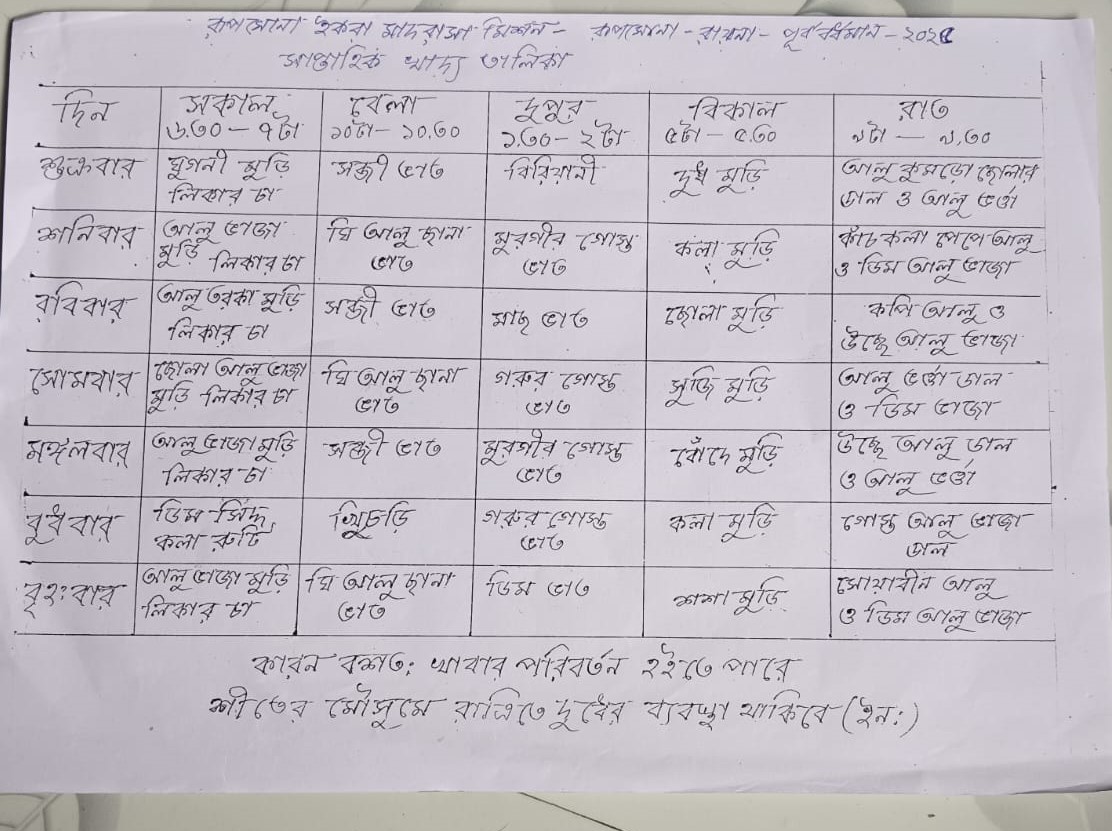 রূপসোনা ইকরা মাদরাসা মিশন - রূপসোনা - রায়না - পূর্ব বর্ধমান - ২০২৫
সাপ্তাহিক খাদ্য তালিকা
দিন সকাল ৬.৩০ - ৭টা বেলা ১০টা - ১০.৩০ দুপুর ১.৩০ - ২টা বিকাল ৫টা - ৫.৩০ রাত ৯টা — ৯.৩০
শুক্রবার ঘুগনী মুড়ি লিকার চা সব্জী ভাত বিরিয়ানী দুধ মুড়ি আলু কুমড়ো ছোলার ডাল ও আলু ভর্তা
শনিবার আলু ভাজা মুড়ি লিকার চা ঘি আলু ছানা ভাত মুরগীর গোস্ত ভাত কলা মুড়ি কাঁচ কলা পেপে আলু ও ডিম আলু ভাজা
রবিবার আলু তরকা মুড়ি লিকার চা সব্জী ভাত মাছ ভাত ছোলা মুড়ি কপি আলু ও উচ্ছে আলু ভাজা
সোমবার ছোলা আলু ভাজা মুড়ি লিকার চা ঘি আলু ছানা ভাত গরুর গোস্ত ভাত সুজি মুড়ি আলু ভর্তা ডাল ও ডিম ভাজা
মঙ্গলবার আলু ভাজা মুড়ি লিকার চা সব্জী ভাত মুরগীর গোস্ত ভাত বোঁদে মুড়ি উচ্ছে আলু ডাল ও আলু ভর্তা
বুধবার ডিম সিদ্ধ কলা রুটি খিচুড়ি গরুর গোস্ত ভাত কলা মুড়ি গোস্ত আলু ভাজা ডাল
বৃহঃবার আলু ভাজা মুড়ি লিকার চা ঘি আলু ছানা ভাত ডিম ভাত শশা মুড়ি সোয়াবীন আলু ও ডিম আলু ভাজা
কারন বশতঃ খাবার পরিবর্তন হইতে পারে
শীতের মৌসুমে রাত্রিতে দুধের ব্যবস্থা থাকিবে (ইনঃ)